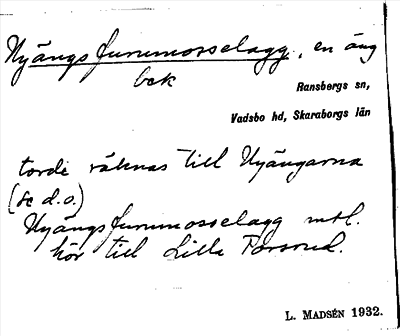 Nyängsfurumosselagg, en äng
bek
Ransbergs sn,
Vadsbo hd, Skaraborgs län
torde räknas till Nyängarna
(se d.o.)
Nyängsfurumosselagg mtl.
hör till Lilla Forsrud.
L. MADSÉN 1932.